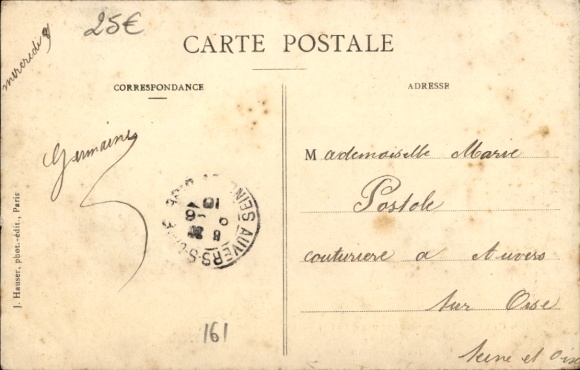 mercredi 9
25€
CARTE POSTALE
CORRESPONDANCE
ADRESSE
Germaine
Mademoiselle Marie
Postole
couturiere a Auvers
sur Oise
Seine et Oise
AUVERS-S-OISE
SEINE
161
J. Hauser, phot.-édit., Paris